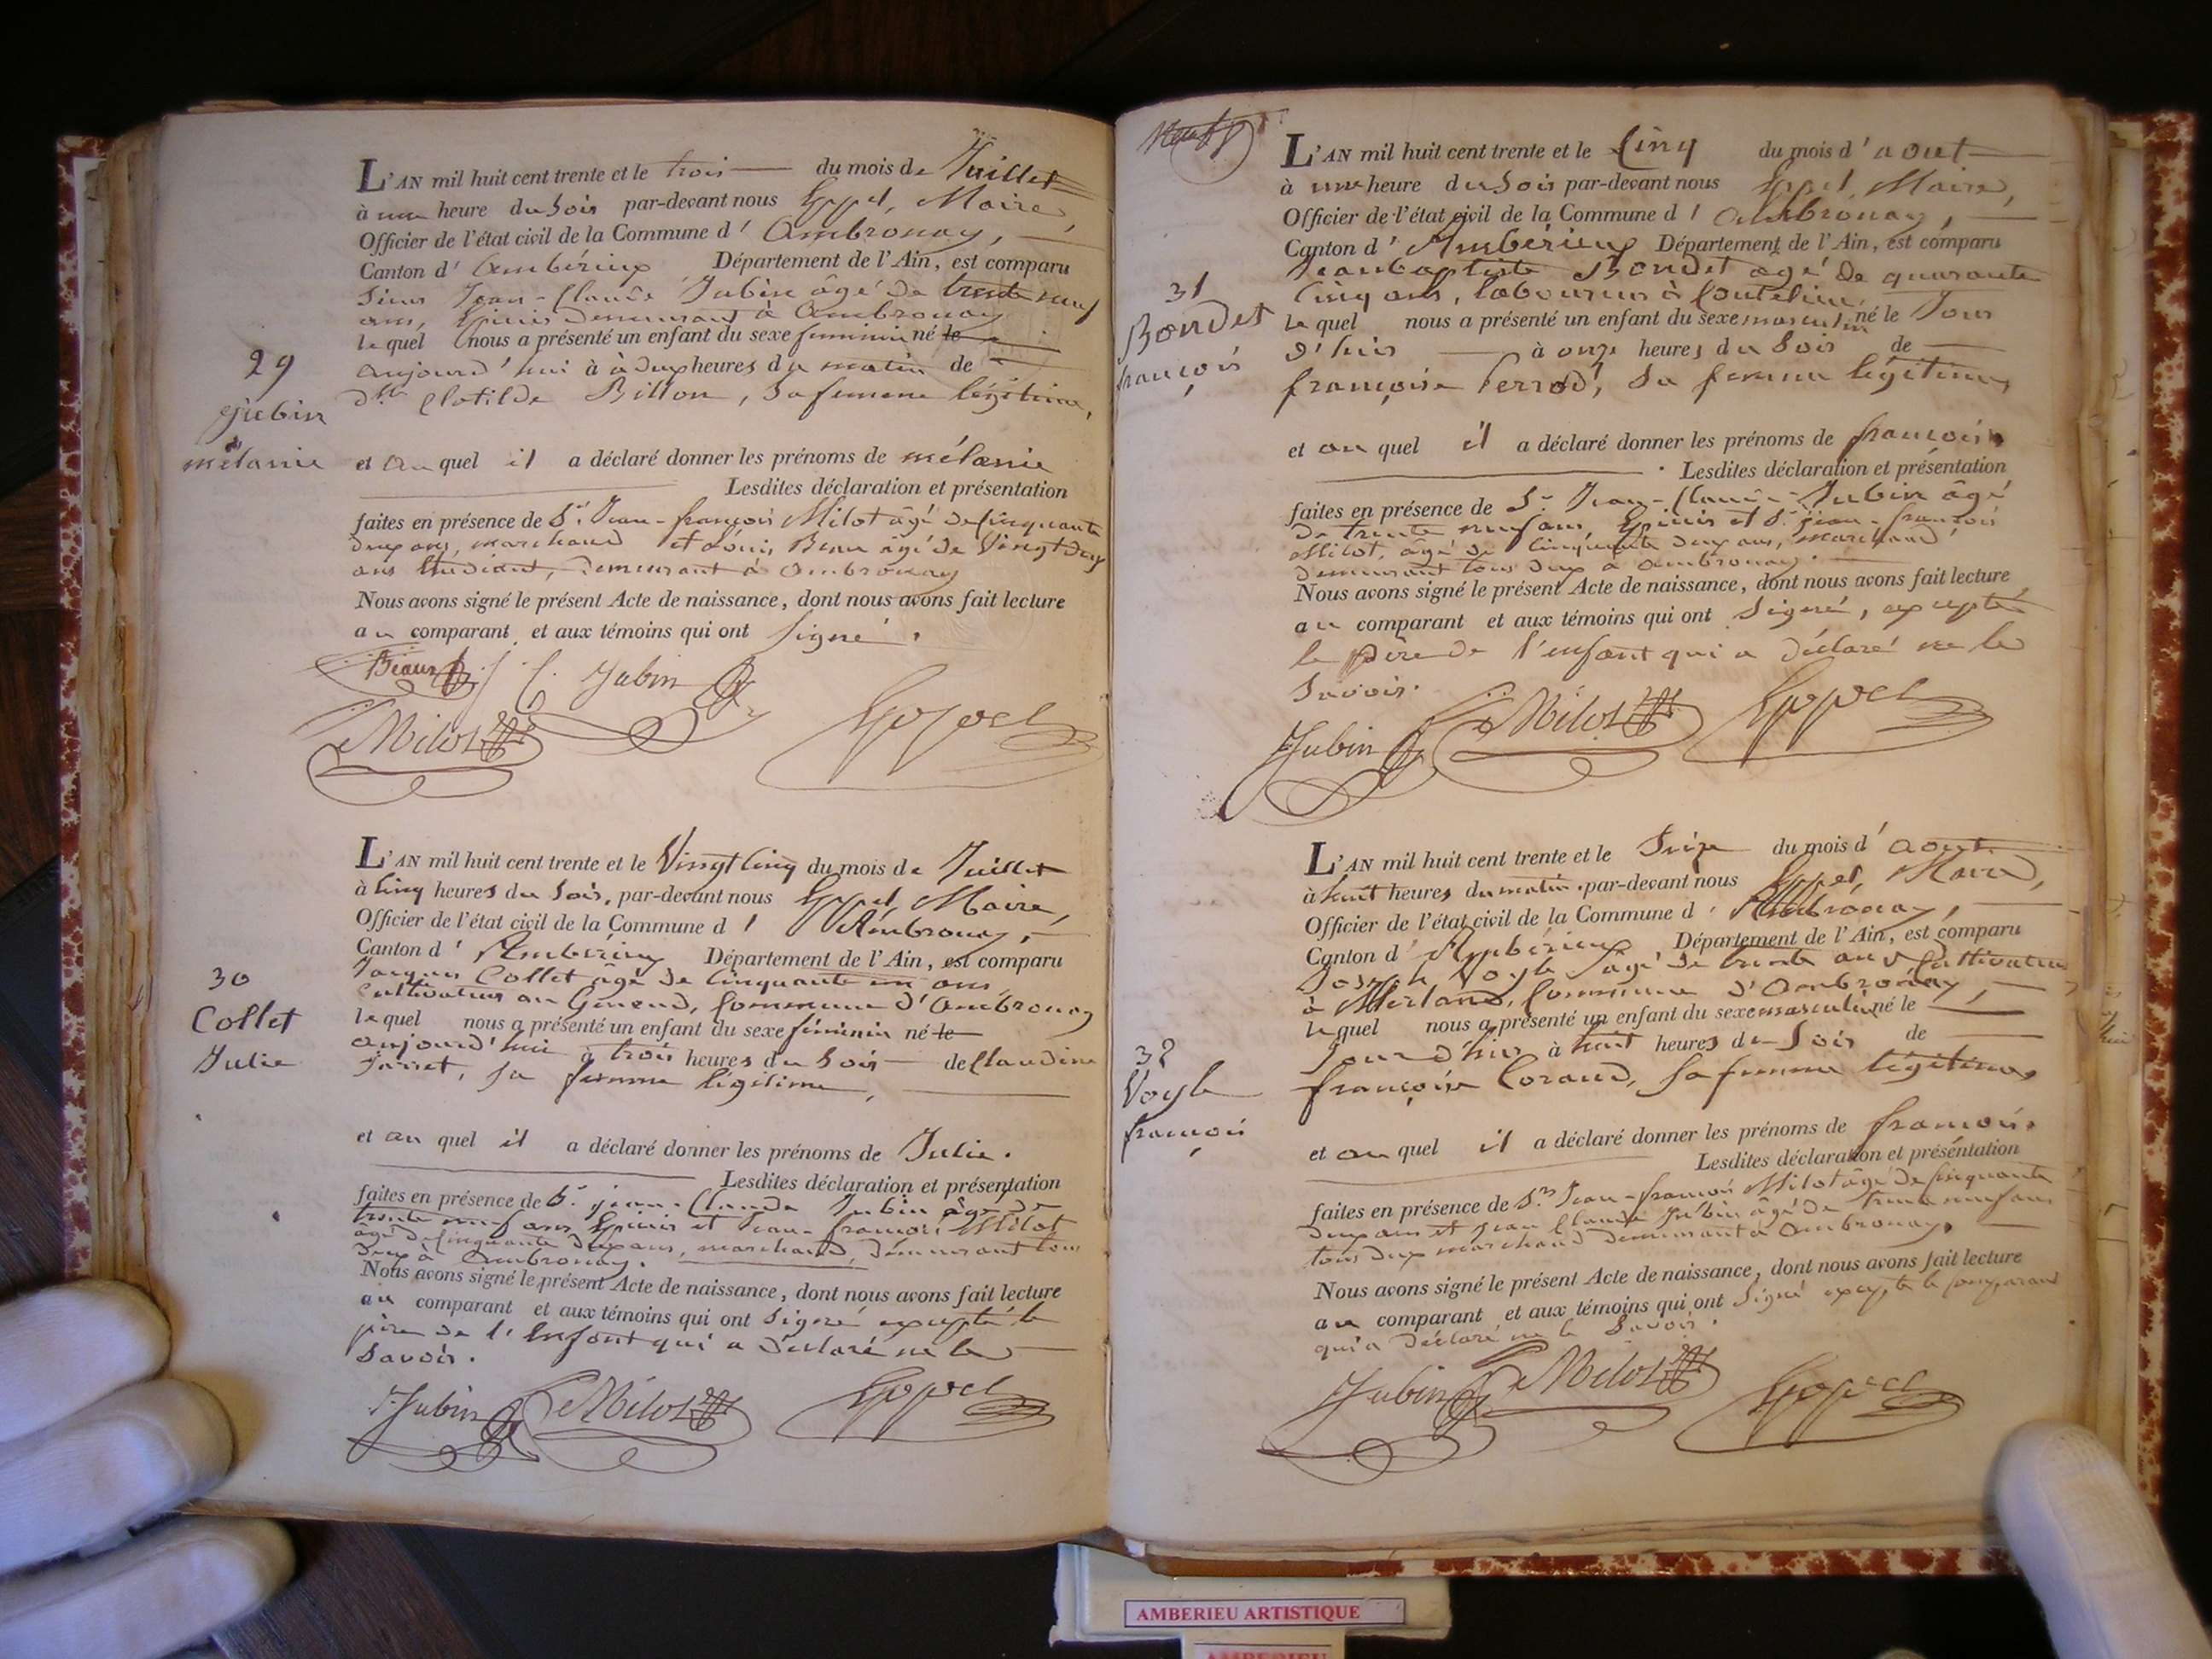 L'AN mil huit cent trente et le trois du mois de Juillet
à une heure du soir par-devant nous Eppel, Maire,
Officier de l'état civil de la Commune d' Ambronay,
Canton d' Ambérieux Département de l'Ain, est comparu
Sieur Jean-Claude Jubin âgé de trente neuf
ans, Epicier demeurant à Ambronay
lequel nous a présenté un enfant du sexe feminin né le
aujourd'hui à à deux heures du matin de
29
Jubin
mélanie
d.lle Clotilde Billon, sa femme légitime,
et au quel il a déclaré donner les prénoms de mélanie
Lesdites déclaration et présentation
faites en présence de Sr. Jean-françois Milot âgé de Cinquante
deux ans, marchand et Louis Beau âgé de Vingt deux
ans Etudiant, demeurant à Ambronay
Nous avons signé le présent Acte de naissance, dont nous avons fait lecture
au comparant et aux témoins qui ont Signé.
Beau J C Jubin
Milot Eppel
L'AN mil huit cent trente et le Vingt Cinq du mois de Juillet
à Cinq heures du soir, par-devant nous Eppel, Maire,
Officier de l'état civil de la Commune d' Ambronay,
Canton d' Ambérieux Département de l'Ain, est comparu
Jacques Collet âgé de Cinquante un ans
Cultivateur au Genoud, Commune d'Ambronay
lequel nous a présenté un enfant du sexe féminin né le
aujourd'hui à trois heures du soir de Claudine
30
Collet
Julie
Jarret, sa femme légitime,
et au quel il a déclaré donner les prénoms de Julie.
Lesdites déclaration et présentation
faites en présence de Sr. jean-Claude Jubin âgé de
trente neuf ans Epicier et Jean-françois Milot
âgé de Cinquante deux ans, marchand, demeurant tous
deux à Ambronay.
Nous avons signé le présent Acte de naissance, dont nous avons fait lecture
au comparant et aux témoins qui ont Signé excepté le
père de l'Enfant qui a déclaré ne le
Savoir.
Jubin Milot Eppel
L'AN mil huit cent trente et le Cinq du mois d'aout
à une heure du soir par-devant nous Eppel, Maire,
Officier de l'état civil de la Commune d' Ambronay,
Canton d' Ambérieux Département de l'Ain, est comparu
Jean baptiste Bondet âgé de quarante
Cinq ans, laboureur à
lequel nous a présenté un enfant du sexe masculin né le Jour
d'hier à onze heures du Soir de
31
Bondet
françois
françoise Perrod, Sa femme légitime
et au quel il a déclaré donner les prénoms de françois
Lesdites déclaration et présentation
faites en présence de Sr. Jean-Claude Jubin âgé
de trente neuf ans, Epicier et Sr. jean-françois
Milot, âgé de Cinquante deux ans, marchand,
demeurant tous deux à ambronay.
Nous avons signé le présent Acte de naissance, dont nous avons fait lecture
au comparant et aux témoins qui ont Signé, excepté
le père de l'enfant qui a déclaré ne le
Savoir.
Jubin Milot Eppel
L'AN mil huit cent trente et le Seize du mois d' aout
à huit heures du matin par-devant nous Eppel, Maire,
Officier de l'état civil de la Commune d' Ambronay,
Canton d' Ambérieux Département de l'Ain, est comparu
Joseph Voyle âgé de trente ans Cultivateur
à Merland, Commune d'Ambronay,
lequel nous a présenté un enfant du sexe masculin né le
Jour d'hier à huit heures du Soir de
32
Voyle
françois
françoise Coraud, Sa femme légitime
et au quel il a déclaré donner les prénoms de françois.
Lesdites déclaration et présentation
faites en présence de Srs Jean-françois Milot âgé de Cinquante
deux ans et jean Claude Jubin âgé de trente neuf ans
tous deux marchand demeurant à Ambronay.
Nous avons signé le présent Acte de naissance, dont nous avons fait lecture
au comparant et aux témoins qui ont Signé excepté le comparant
qui a déclaré ne le Savoir.
Jubin Milot Eppel
AMBERIEU ARTISTIQUE
AMBERIEU